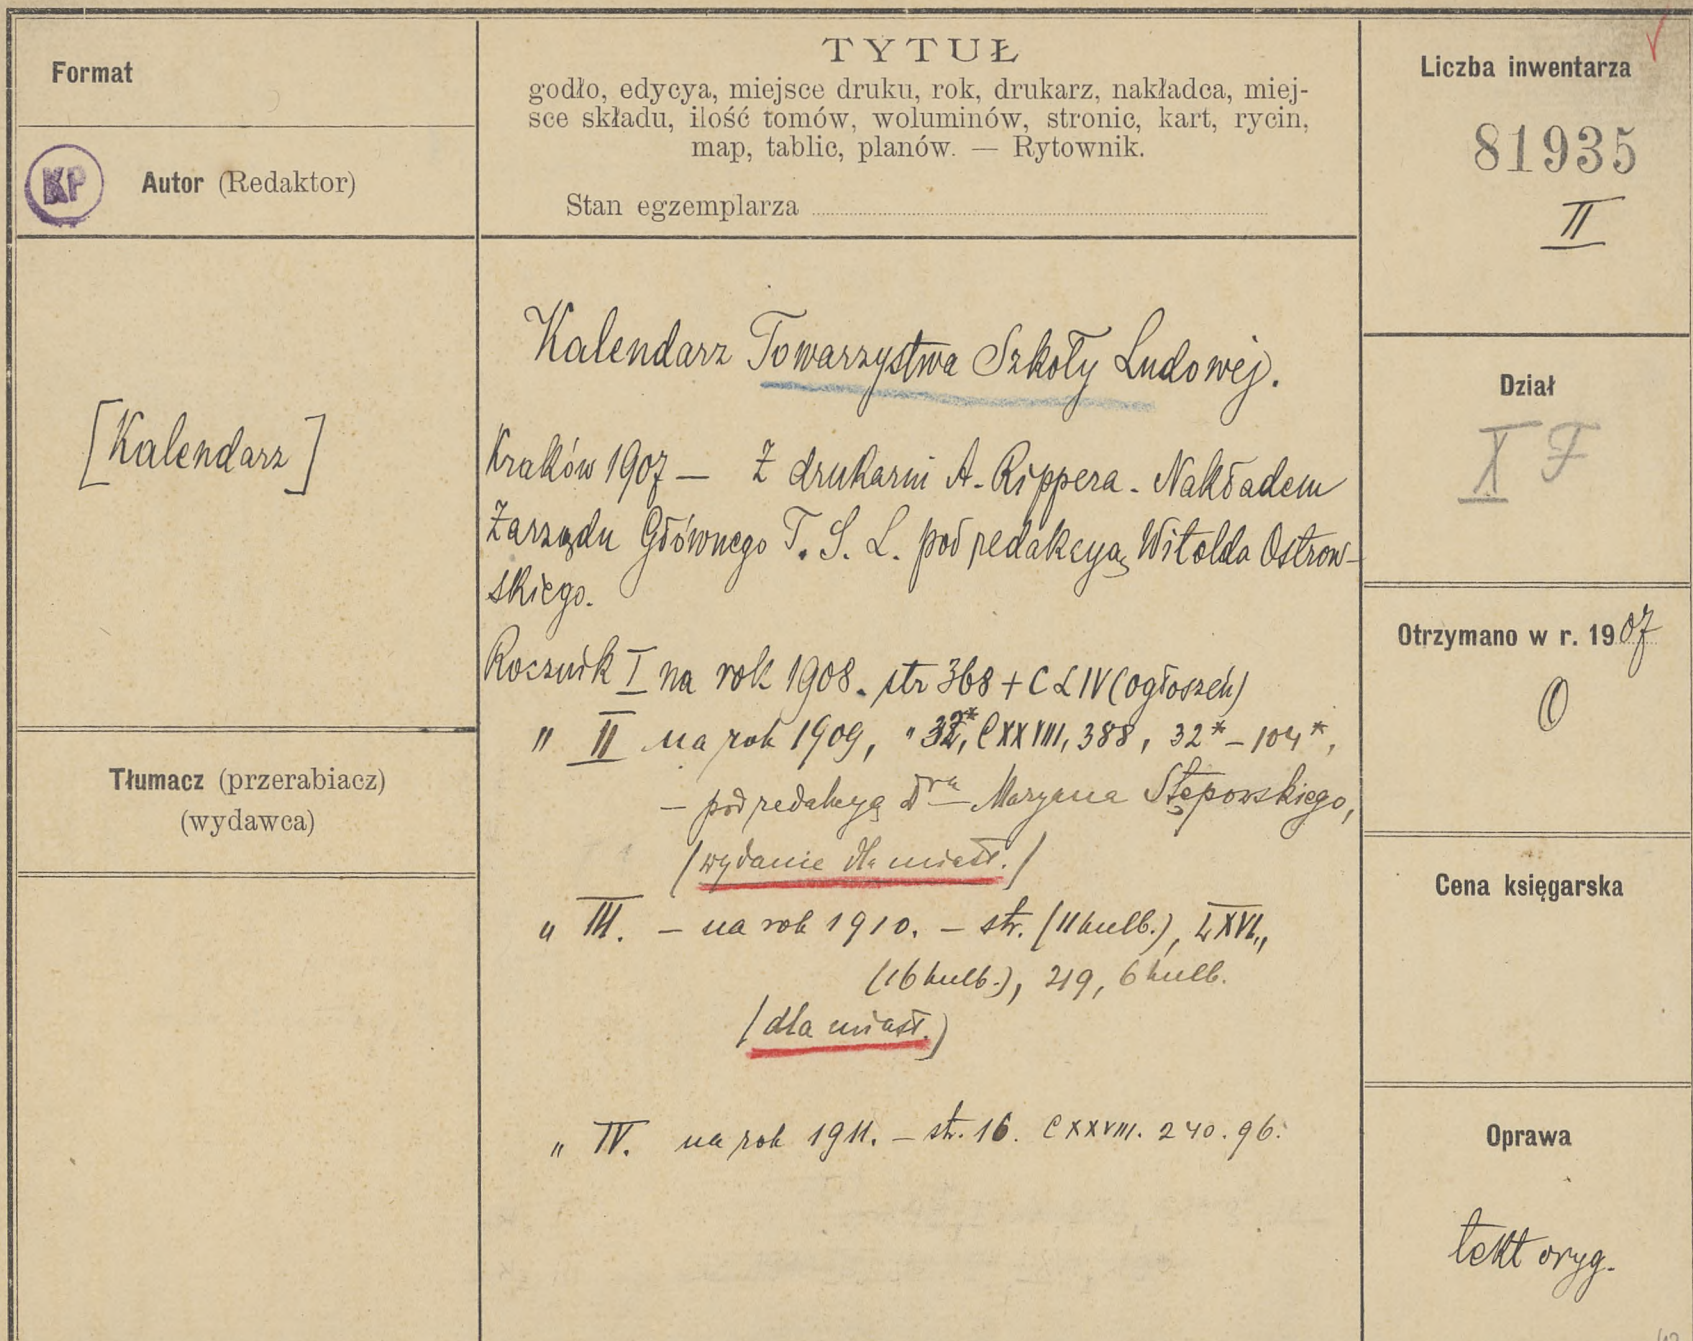 Format
KP
Autor (Redaktor)
[Kalendarz]
Tłumacz (przerabiacz)
(wydawca)
TYTUŁ
godło, edycya, miejsce druku, rok, drukarz, nakładca, miej-
sce składu, ilość tomów, woluminów, stronic, kart, rycin,
map, tablic, planów. — Rytownik.
Stan egzemplarza
Kalendarz Towarzystwa Szkoły Ludowej.
Kraków 1907 — Z drukarni A. Rippera. Nakładem
Zarządu Głównego T. S. L. pod redakcyą Witolda Ostrow-
skiego.
Rocznik I na rok 1908. str 368 + CLIV (ogłoszeń)
" II na rok 1909, " 32*, CXXVIII, 388, 32* – 104*,
– pod redakcyą Dra Maryana Stępowskiego,
(wydanie dla miast.)
" III. – na rok 1910. – str. (11 nlb.), LXVI,,
(16 nlb.), 219, 6 nlb.
(dla miast.)
" IV. na rok 1911. – str. 16. CXXVIII. 240. 96.
Liczba inwentarza
81935
II
Dział
X F
Otrzymano w r. 1907
O
Cena księgarska
Oprawa
tekt oryg.